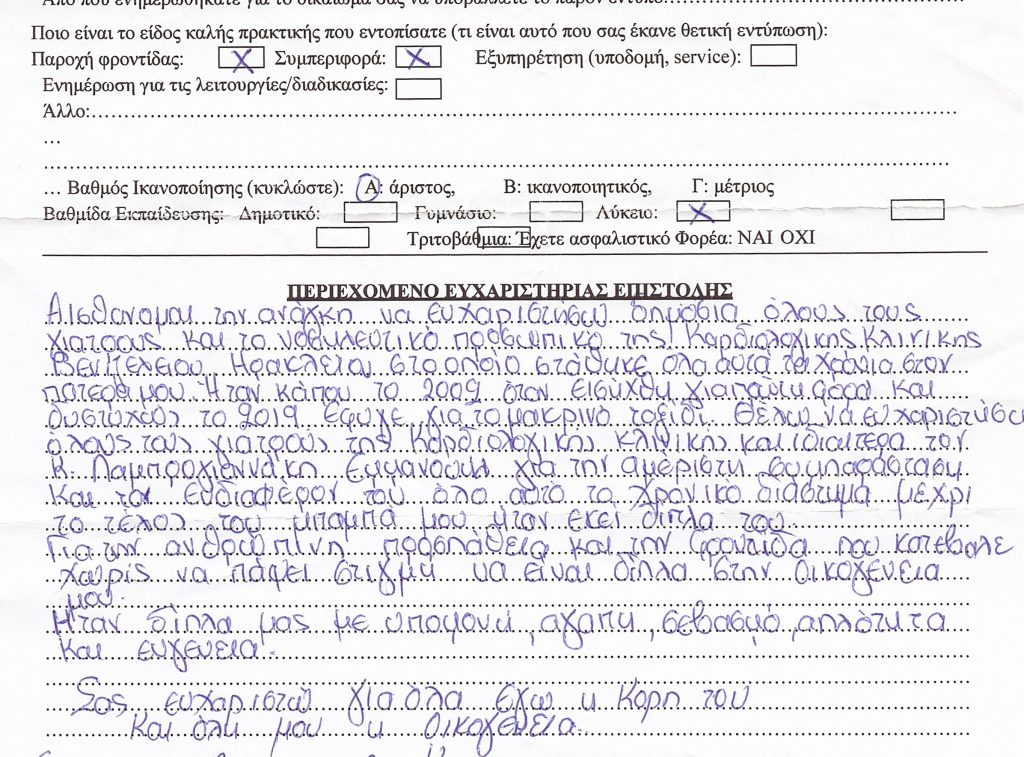 Από που ενημερωθήκατε για το δικαίωμα σας να υποβάλλετε το παρόν έντυπο:
Ποιο είναι το είδος καλής πρακτικής που εντοπίσατε (τι είναι αυτό που σας έκανε θετική εντύπωση):
Παροχή φροντίδας: X Συμπεριφορά: X Εξυπηρέτηση (υποδομή, service):
Ενημέρωση για τις λειτουργίες/διαδικασίες:
Άλλο:……………………………………………
…
……………………………………………
… Βαθμός Ικανοποίησης (κυκλώστε): Α: άριστος, Β: ικανοποιητικός, Γ: μέτριος
Βαθμίδα Εκπαίδευσης: Δημοτικό: Γυμνάσιο: Λύκειο: X
Τριτοβάθμια: Έχετε ασφαλιστικό Φορέα: ΝΑΙ ΟΧΙ
ΠΕΡΙΕΧΟΜΕΝΟ ΕΥΧΑΡΙΣΤΗΡΙΑΣ ΕΠΙΣΤΟΛΗΣ
Αισθανομαι την ανάγκη να ευχαριστήσω δημόσια όλους τους
γιατρους και το νοσηλευτικό προσωπικό της Καρδιολογικης Κλινικης
Βενιζελειου Ηρακλειου στο οποίο στάθηκε ολα αυτά τα χρόνια στον
πατερα μου. Ήταν κάπου το 2009 όταν εισύχθη για πρώτη φορά και
δυστυχώς το 2019 έφυγε για το μακρινό ταξίδι. Θέλω να ευχαριστήσω
όλους τους γιατρούς της Καρδιολογικης κλινικης και ιδιαιτερα τον
κ. Λαμπρογιαννάκη Εμμανουηλ για την αμέριστη συμπαράσταση
και τον ενδιαφέρον του όλο αυτό το χρονικό διάστημα μεχρι
το τέλος του μπαμπά μου ήταν εκεί δίπλα του
Για την ανθρώπινη προσπάθεια και την φροντίδα που κατέβαλε
χωρίς να πάψει στιγμή να είναι δίπλα στην οικογένεια
μου.
Ήταν δίπλα μας με υπομονή, αγαπη, σεβασμό, απλότητα
και ευγενεια.
Σας ευχαριστώ για όλα εγω η Κορη του
Και όλη μου η οικογένεια.